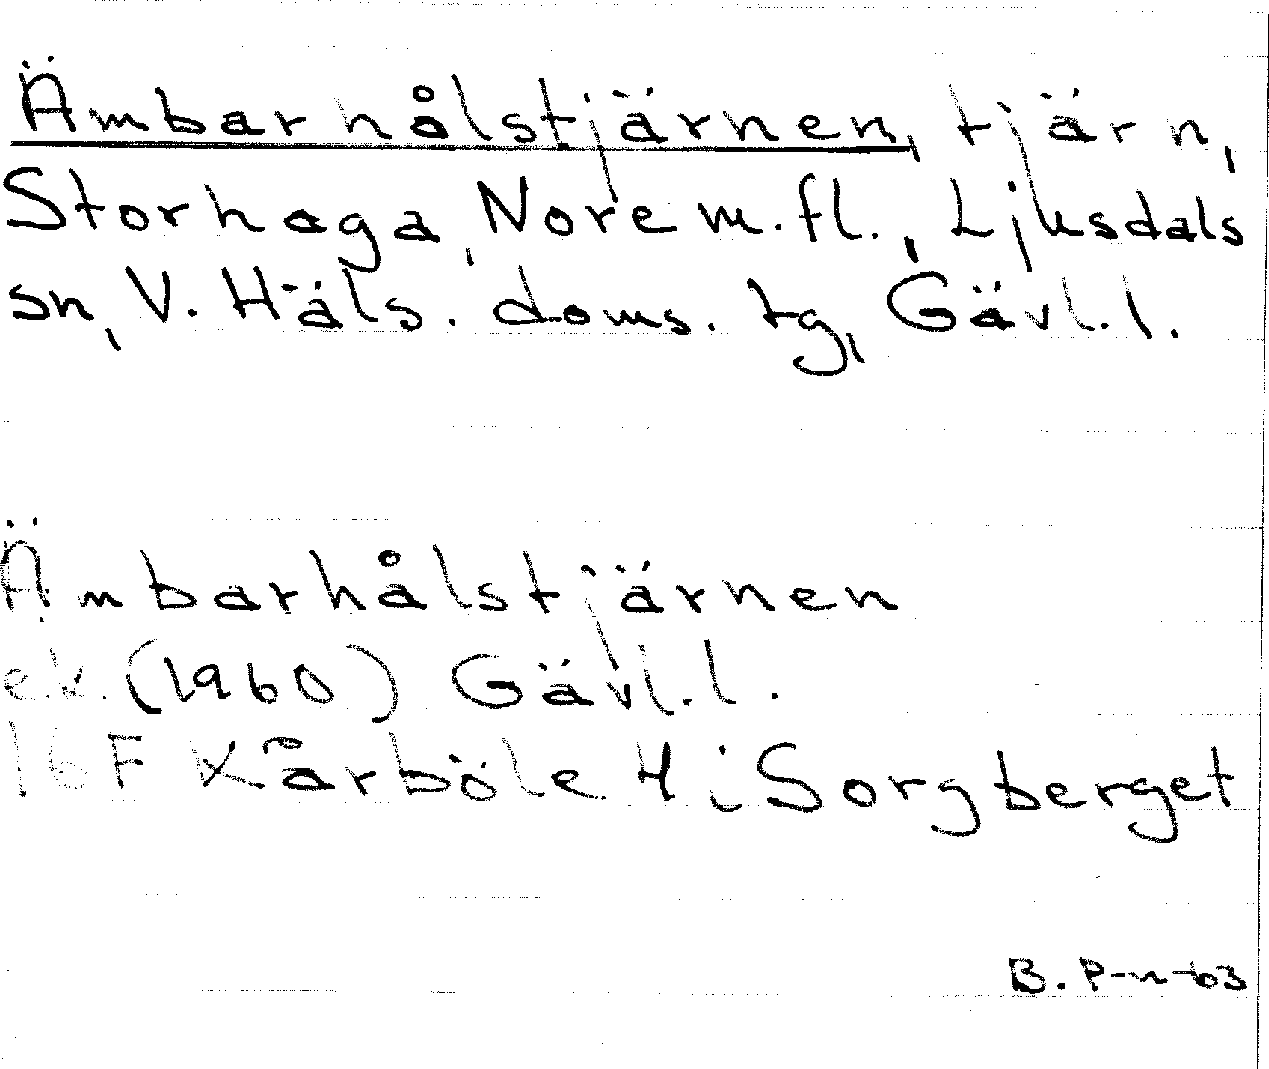 Ämbarhålstjärnen, tjärn,
Storhaga, Nore m.fl., Ljusdals
sn, V. Häls. doms. tg, Gävl.l.
Ämbarhålstjärnen
ek. (1960) Gävl.l.
16F Kårböle 4 i Sorgberget
B. P-n-63